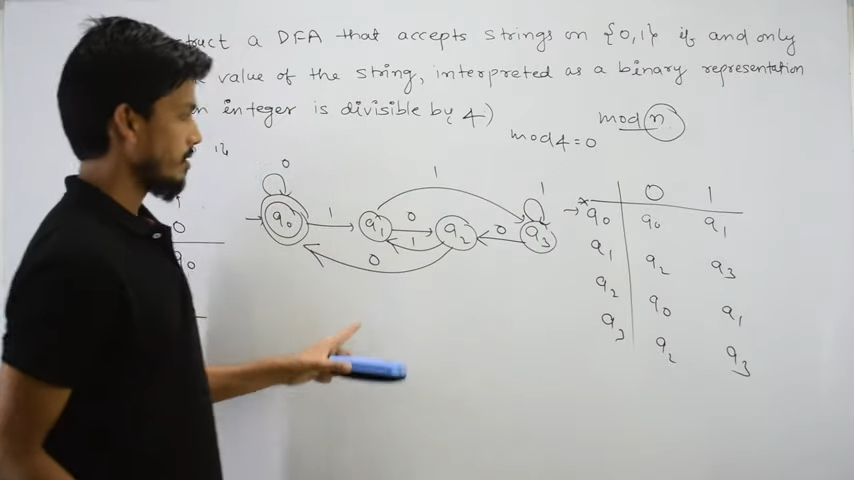 a DFA that accepts strings on {0,1} if and only
value of the string, interpreted as a binary representation
integer is divisible by 4)
mod n
mod 4 = 0
0 1
→* q0 q0 q1
q1 q2 q3
q2 q0 q1
q3 q2 q3
0
1
1
q0 1 q1 0 q2 0 q3
1
0
1
0
q0